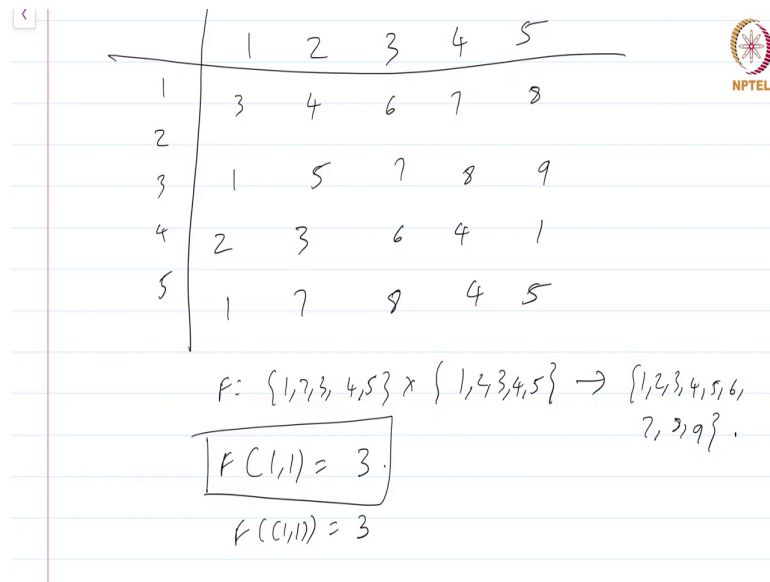 1 2 3 4 5
NPTEL
1 3 4 6 7 8
2
3 1 5 7 8 9
4 2 3 6 4 1
5 1 7 8 4 5
F: {1,2,3, 4,5} x { 1,2,3,4,5} → {1,2,3,4,5,6,
7, 8,9}.
F(1,1) = 3.
F((1,1)) = 3